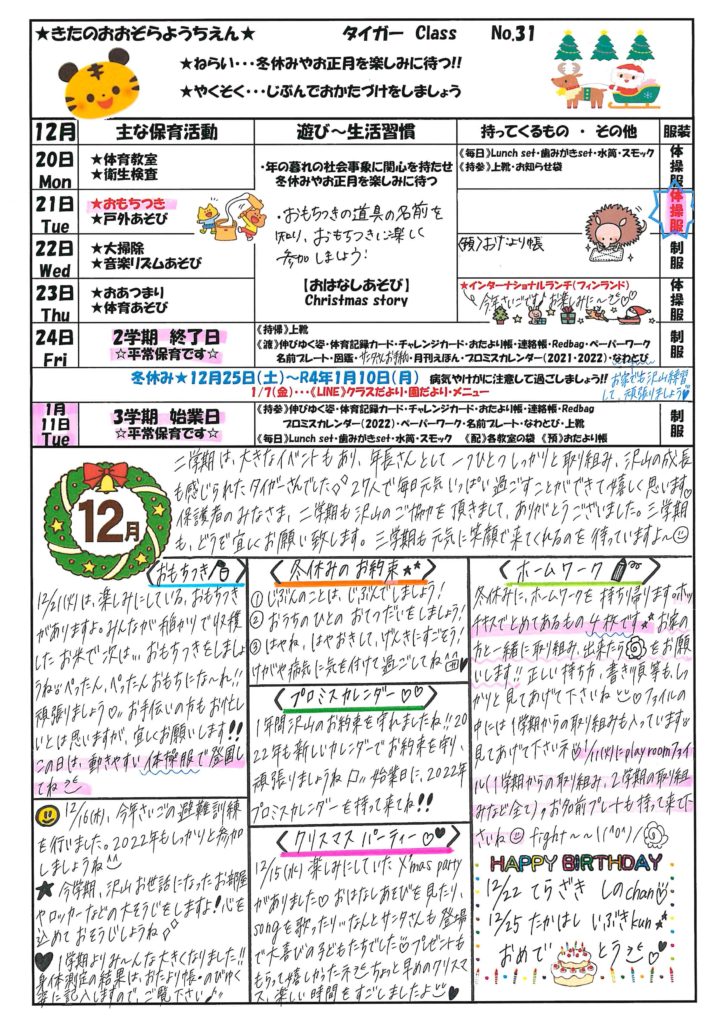 ★きたのおおぞらようちえん★ タイガー Class No.31
★ねらい･･･冬休みやお正月を楽しみに待つ!!
★やくそく･･･じぶんでおかたづけをしましょう
12月 主な保育活動 遊び～生活習慣 持ってくるもの ・ その他 服装
20日 Mon
★体育教室
★衛生検査
・年の暮れの社会事象に関心を持たせ
冬休みやお正月を楽しみに待つ
《毎日》Lunch set・歯みがきset・水筒・スモック
《持参》上靴・お知らせ袋
体操服
21日 Tue
★おもちつき
★戸外あそび
・おもちつきの道具の名前を
知り、おもちつきに楽しく
参加しましょう！
体操服
22日 Wed
★大掃除
★音楽リズムあそび
《預》おたより帳
制服
23日 Thu
★おあつまり
★体育あそび
【おはなしあそび】
Christmas story
★インターナショナルランチ(フィンランド)
今年さいごです♪お楽しみに〜♡
体操服
24日 Fri
2学期 終了日
☆平常保育です☆
《持帰》上靴
《渡》伸びゆく姿・体育記録カード・チャレンジカード・おたより帳・連絡帳・Redbag・ペーパーワーク
名前プレート・図鑑・サンタさんお手紙・月刊えほん・プロミスカレンダー(2021・2022)・なわとび
制服
冬休み★12月25日(土)～R4年1月10日(月) 病気やけがに注意して過ごしましょう!!
1/7(金)･･･《LINE》クラスだより・園だより・メニュー
お家でも沢山練習
して、頑張りましょう♡
1月 11日 Tue
3学期 始業日
☆平常保育です☆
《持参》伸びゆく姿・体育記録カード・チャレンジカード・おたより帳・連絡帳・Redbag
プロミスカレンダー(2022)・ペーパーワーク・名前プレート・なわとび・上靴
《毎日》Lunch set・歯みがきset・水筒・スモック 《配》各教室の袋 《預》おたより帳
制服
12月
二学期は、大きなイベントもあり、年長さんとして一つひとつしっかりと取り組み、沢山の成長
も感じられたタイガーさんでした。27人で毎日元気いっぱい過ごすことができて嬉しく思います♡
保護者のみなさま、二学期も沢山のご協力を頂きまして、ありがとうございました。三学期
も、どうぞ宜しくお願い致します。三学期も元気に笑顔で来てくれるのを待っていますよ〜☺
おもちつき
12/21(火)は、楽しみにしている、おもちつき
がありますよ。みんなが稲かりで収穫
したお米で次は…おもちつきをしましょ
うね♡ぺったん、ぺったんおもちにな〜れ!!
頑張りましょう♡♪お手伝いの方もお忙し
いとは思いますが、宜しくお願いします!!
この日は、動きやすい体操服で登園し
てね
12/16(木)、今年さいごの避難訓練
を行いました。2022年もしっかりと参加
しましょうね
★今学期、沢山お世話になったお部屋
やロッカーなどの大そうじをしますよ！心を
込めておそうじしょうね
♥1学期よりみ〜んな大きくなりました!!
身体測定の結果は、おたより帳・のびゆく
姿に記入しますので、ご覧下さい♪
冬休みのお約束★★
①じぶんのことは、じぶんでしましょう！
②おうちのひとの おてつだいをしましょう！
③はやね、はやおきして、げんきにすごそう！
けがや病気に気を付けて過ごしてね
プロミスカレンダー♡♡
1年間沢山のお約束を守れましたね!!20
22年も新しいカレンダーでお約束を守り、
頑張りましょうね 始業日に、2022年
プロミスカレンダーを持って来てね!!
クリスマス パーティー♡♥
12/15(水)楽しみにしていたX'mas party
がありました♡おはなしあそびを見たり、
songを歌ったり…なんとサンタさんも登場
で大喜びの子どもたちでした♡プレゼントも
もらって嬉しかったネ ちょっと早めのクリスマ
ス、楽しい時間をすごしましたよ♥
ホームワーク
冬休みに、ホームワークを持ち帰ります。ホッ
チキスでとめてあるもの4枚です★★お家の
方と一緒に取り組み、出来たら をお願い
します!!正しい持ち方、書き順等もしっ
かりと見てあげて下さいね♡ファイルの
中には1学期からの取り組みも入っています
見てあげて下さいネ♡1/11(火)にplayroomファイ
ル(1学期からの取り組み、2学期の取り組
みなど全て)、お名前プレートも持って来て下
さいね☺ fight〜〜!(^0^)/
HAPPY BIRTHDAY
12/22 てらざき しのchan♡
12/25 たかはし いぶきkun★
おめでとう